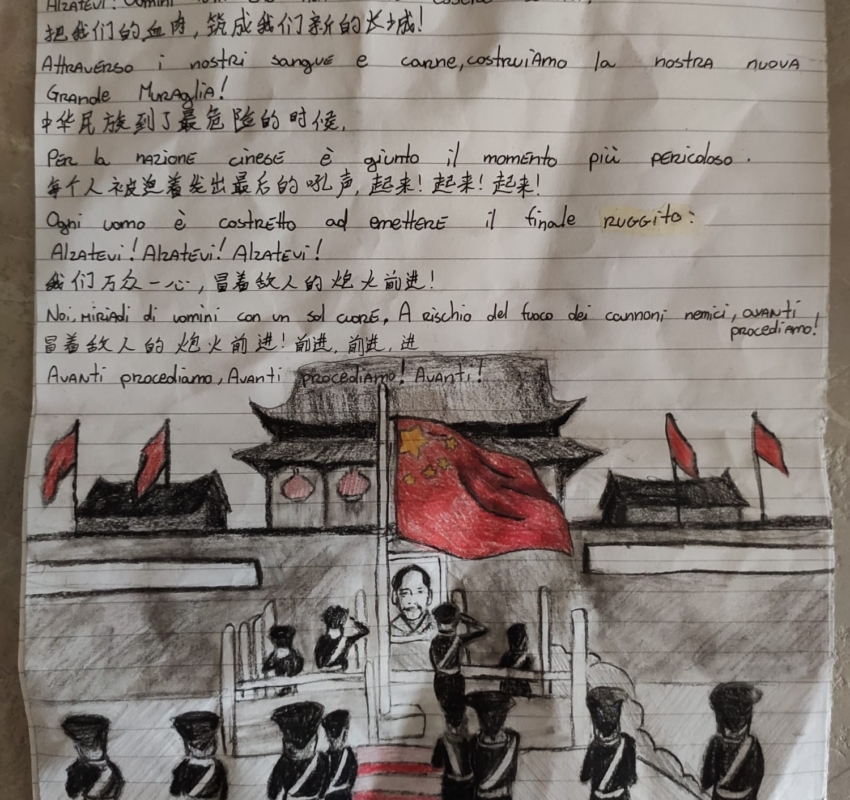 Alzatevi! Uomini
把我们的血肉,筑成我们新的长城!
Attraverso i nostri sangue e carne, costruiamo la nostra nuova
Grande Muraglia!
中华民族到了最危险的时候,
Per la nazione cinese è giunto il momento più pericoloso.
每个人被迫着发出最后的吼声,起来!起来!起来!
Ogni uomo è costretto ad emettere il finale ruggito:
Alzatevi! Alzatevi! Alzatevi!
我们万众一心,冒着敌人的炮火前进!
Noi, miriadi di uomini con un sol cuore, A rischio del fuoco dei cannoni nemici, avanti
procediamo!
冒着敌人的炮火前进!前进,前进,进
Avanti procediamo, Avanti procediamo! Avanti!